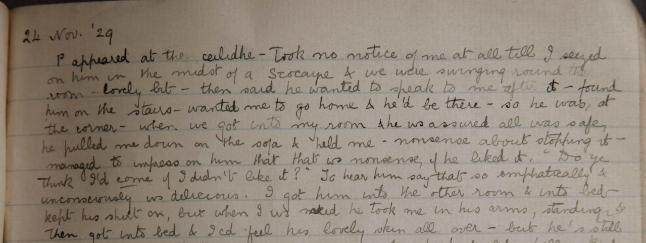 24 Nov. '29
P appeared at the ceilidhe - Took no notice of me at all till I seized
on him in the midst of a & we were swinging round the
room - lovely bit - then said he wanted to speak to me after it - found
him on the stairs - wanted me to go home & he'd be there - so he was, at
the corner - when we got into my room & he was assured all was safe,
he pulled me down on the sofa & held me - nonsense about stopping it -
managed to impress on him that that was nonsense, if he liked it. "Do ye
think I'd come if I didn't like it?" To hear him say that so emphatically &
unconsciously was delicious. I got him into the other room & into bed -
kept his shirt on, but when I was naked he took me in his arms, standing, &
then got into bed & I cd feel his lovely skin all over - but he's still